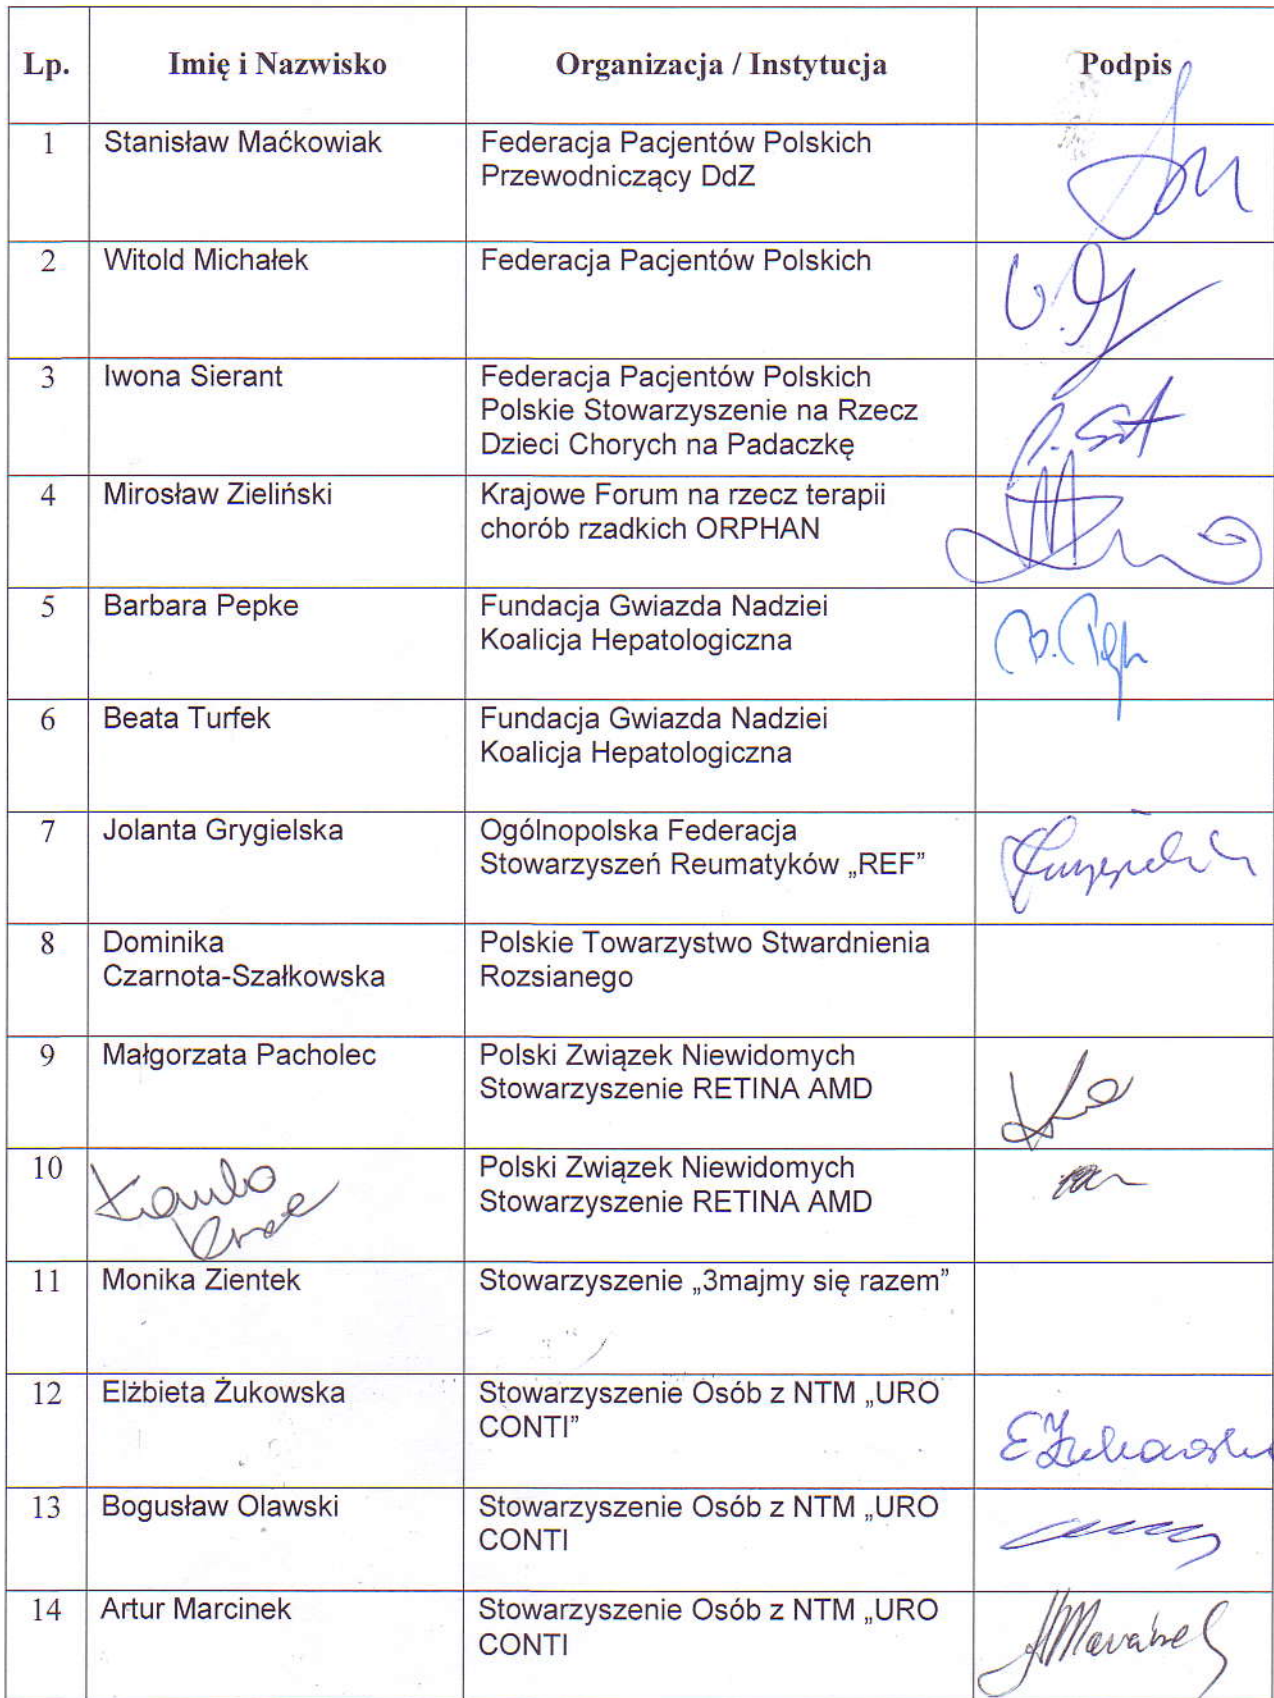 Lp. Imię i Nazwisko Organizacja / Instytucja Podpis
1 Stanisław Maćkowiak Federacja Pacjentów Polskich
Przewodniczący DdZ
2 Witold Michałek Federacja Pacjentów Polskich
3 Iwona Sierant Federacja Pacjentów Polskich
Polskie Stowarzyszenie na Rzecz
Dzieci Chorych na Padaczkę
4 Mirosław Zieliński Krajowe Forum na rzecz terapii
chorób rzadkich ORPHAN
5 Barbara Pepke Fundacja Gwiazda Nadziei
Koalicja Hepatologiczna
6 Beata Turfek Fundacja Gwiazda Nadziei
Koalicja Hepatologiczna
7 Jolanta Grygielska Ogólnopolska Federacja
Stowarzyszeń Reumatyków „REF”
8 Dominika Polskie Towarzystwo Stwardnienia
Czarnota-Szałkowska Rozsianego
9 Małgorzata Pacholec Polski Związek Niewidomych
Stowarzyszenie RETINA AMD
10 Polski Związek Niewidomych
Stowarzyszenie RETINA AMD
11 Monika Zientek Stowarzyszenie „3majmy się razem”
12 Elżbieta Żukowska Stowarzyszenie Osób z NTM „URO
CONTI”
13 Bogusław Olawski Stowarzyszenie Osób z NTM „URO
CONTI
14 Artur Marcinek Stowarzyszenie Osób z NTM „URO
CONTI